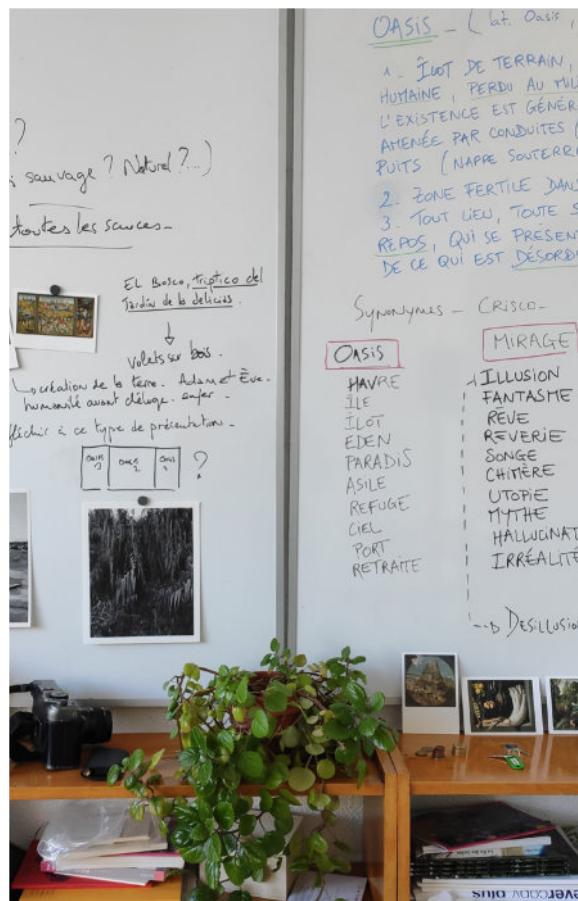 ?
sauvage ? Naturel ?...)
toutes les sauces -
EL BOSCO, Triptico del
Jardin de la delicias.
Volets sur bois.
création de la terre. Adam et Ève.
humanité avant déluge. enfer.
fléchir à ce type de présentation -
OASIS
2
?
OASIS - ( lat. Oasis,
1 - ÎLOT DE TERRAIN,
HUMAINE, PERDU AU MIL
L'EXISTENCE EST GÉNÉR
AMENÉE PAR CONDUITES (
PUITS (NAPPE SOUTERR
2. ZONE FERTILE DANS
3. TOUT LIEU, TOUTE S
REPOS, QUI SE PRÉSENT
DE CE QUI EST DÉSORD
SYNONYMES - CRISCO -
OASIS
HAVRE
ÎLE
ILOT
EDEN
PARADIS
ASILE
REFUGE
CIEL
PORT
RETRAITE
MIRAGE
ILLUSION
FANTASME
RÊVE
REVERIE
SONGE
CHIMÈRE
UTOPIE
MYTHE
HALLUCINAT
IRRÉALITÉ
DESILLUSION
evercopy plus